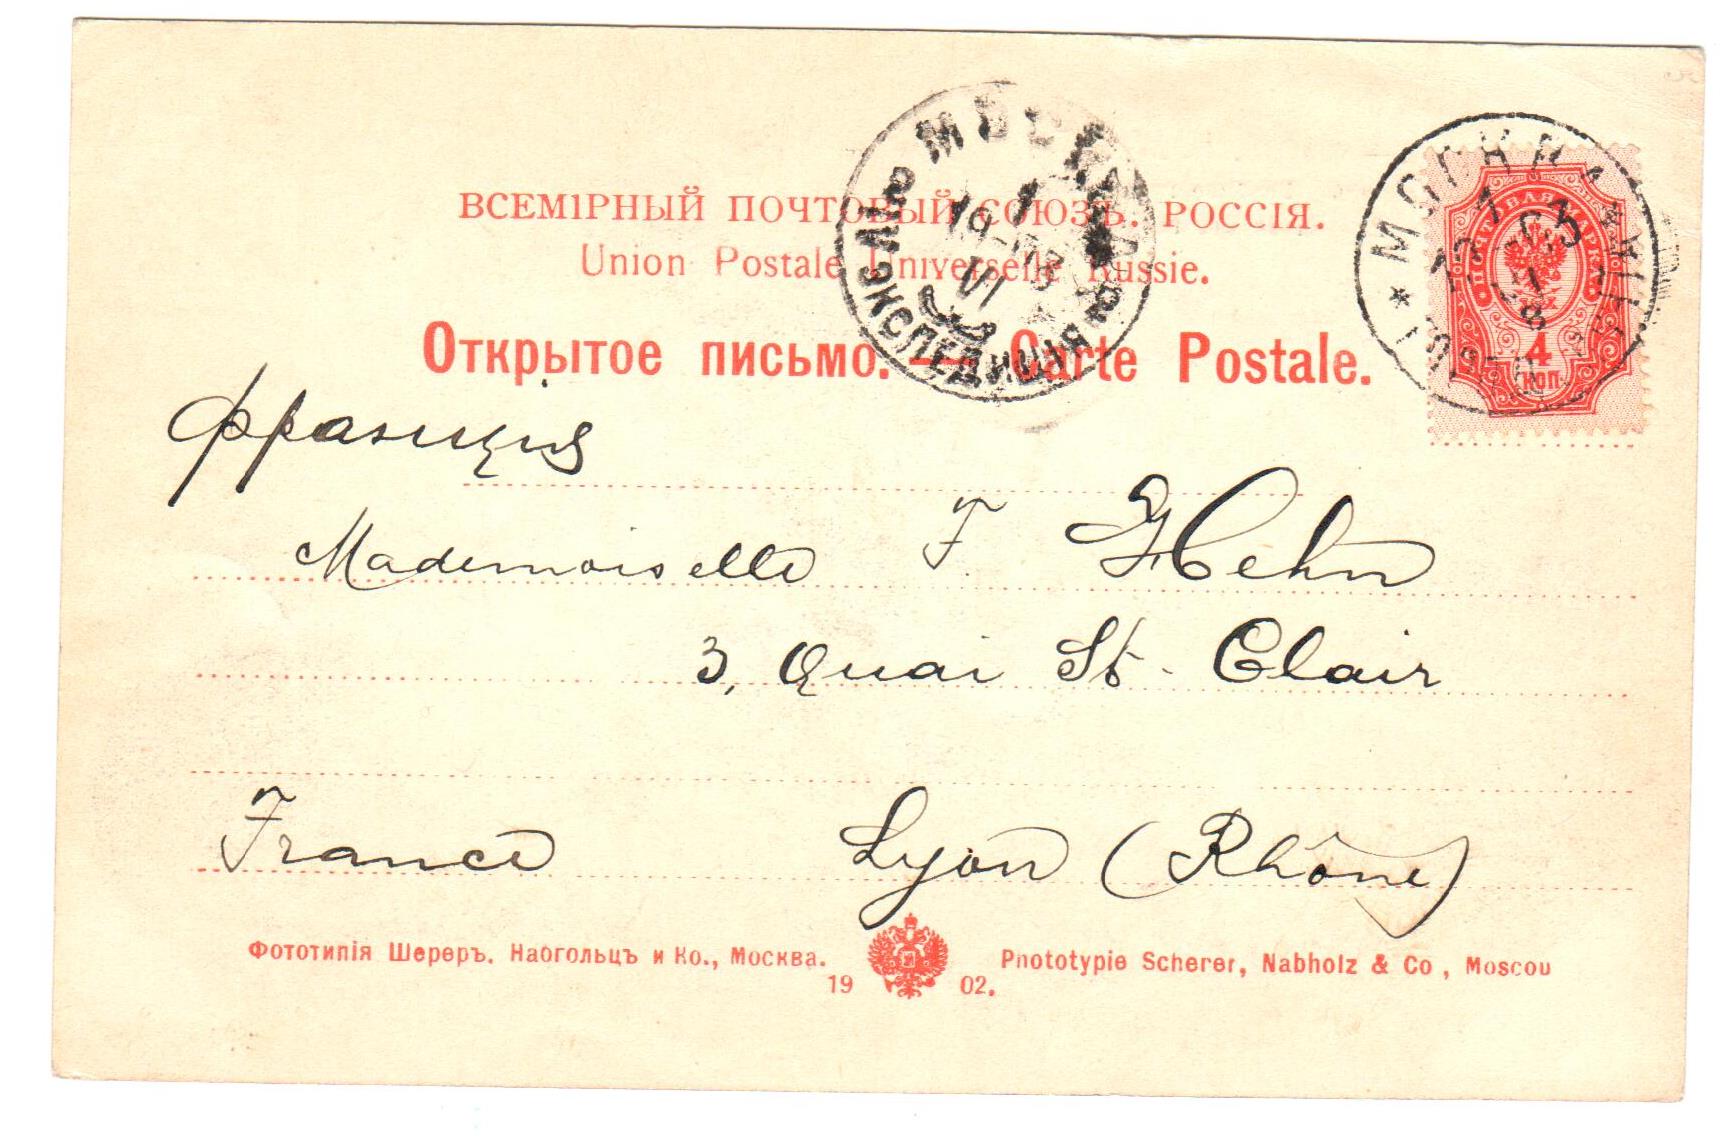 ВСЕМIРНЫЙ ПОЧТОВЫЙ СОЮЗЪ. РОССIЯ.
Union Postale Universelle Russie.
Открытое письмо. — Carte Postale.
МОСКВА
ЭКСПЕДИЦIЯ
VI
МОСКВА
ПОЧТОВАЯ МАРКА
4
КОП.
Франция
Mademoiselle F. Hehn
3, Quai St. Clair
France Lyon (Rhône)
Фототипiя Шереръ. Набгольцъ и Ко., Москва.
1902.
Phototypie Scherer, Nabholz & Co, Moscou